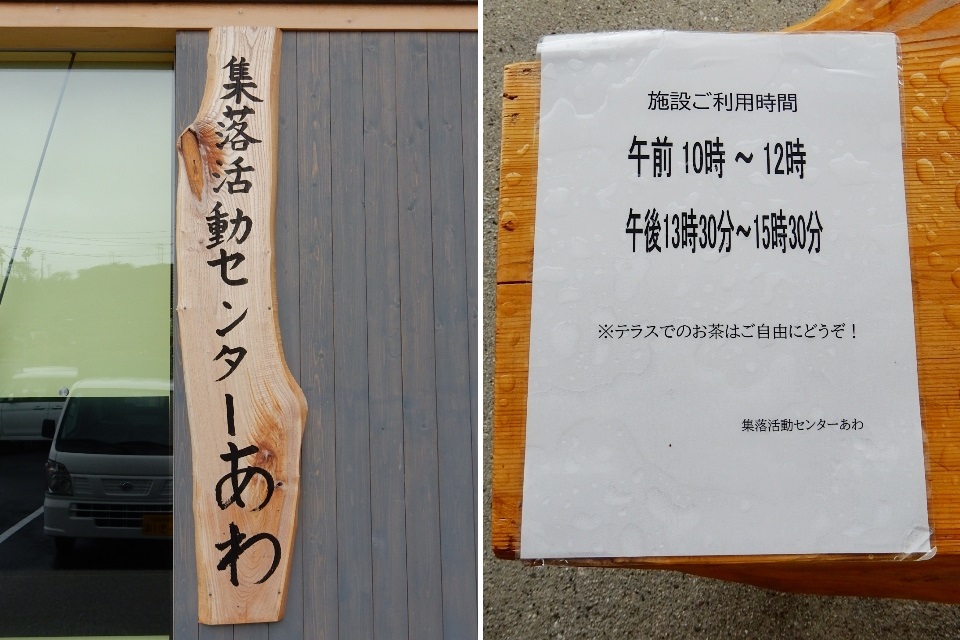 集落活動センターあわ
施設ご利用時間
午前 10時 ～ 12時
午後13時30分～15時30分
※テラスでのお茶はご自由にどうぞ！
集落活動センターあわ